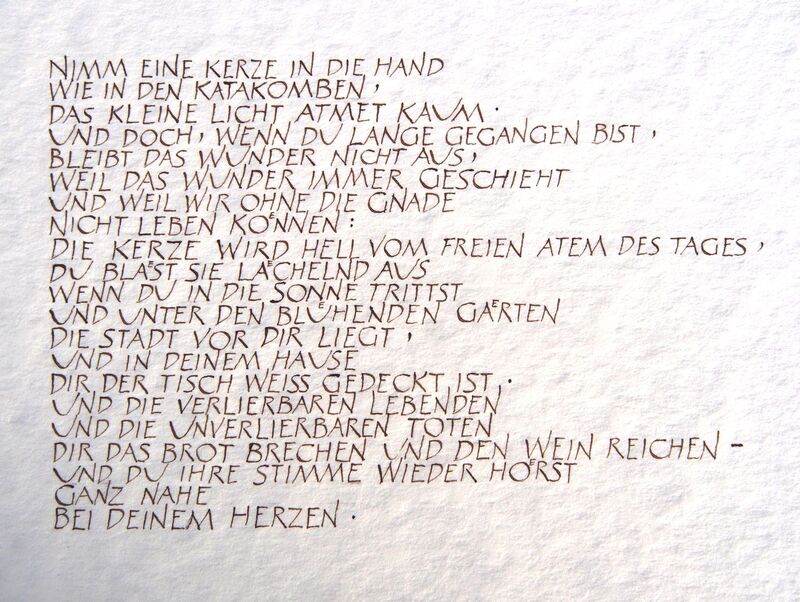 NIMM EINE KERZE IN DIE HAND
WIE IN DEN KATAKOMBEN,
DAS KLEINE LICHT ATMET KAUM.
UND DOCH, WENN DU LANGE GEGANGEN BIST,
BLEIBT DAS WUNDER NICHT AUS,
WEIL DAS WUNDER IMMER GESCHIEHT
UND WEIL WIR OHNE DIE GNADE
NICHT LEBEN KOͤNNEN:
DIE KERZE WIRD HELL VOM FREIEN ATEM DES TAGES,
DU BLAͤST SIE LAͤCHELND AUS
WENN DU IN DIE SONNE TRITTST
UND UNTER DEN BLUͤHENDEN GAͤRTEN
DIE STADT VOR DIR LIEGT,
UND IN DEINEM HAUSE
DIR DER TISCH WEISS GEDECKT IST.
UND DIE VERLIERBAREN LEBENDEN
UND DIE UNVERLIERBAREN TOTEN
DIR DAS BROT BRECHEN UND DEN WEIN REICHEN –
UND DU IHRE STIMME WIEDER HOͤRST
GANZ NAHE
BEI DEINEM HERZEN.